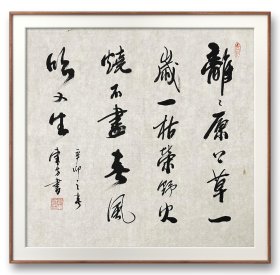 離〻原上草一
歲一枯榮野火
燒不盡春風
吹又生
辛卯之春
書